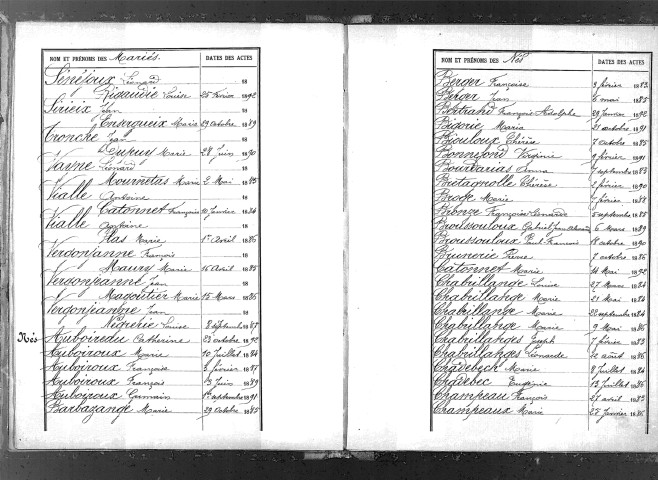 NOM ET PRÉNOMS DES Mariés. DATES DES ACTES
Sénéjoux Léonard 18
Rigaudie Louise 25 février 1892
Sirieix Jean 18
Enserqueix Marie 29 octobre 1889
Tronche Jean 18
Dupuy Marie 28 juin 1890
Vayne Léonard 18
Mournetas Marie 2 Mai 1885
Vialle Antoine 18
Catonnet Françoise 10 janvier 1884
Vialle Antoine 18
Plas Marie 1er Avril 1886
Vergonjanne François 18
Maury Marie 16 Avril 1885
Vergonjeanne Jean 18
Magoutier Marie 15 Mars 1886
Vergonjeanne Jean 18
Négrerie Louise 8 septembre 1887
Nés Auboiroux Catherine 23 octobre 1892
Auboiroux Marie 10 juillet 1884
Auboiroux Françoise 3 février 1887
Auboiroux François 23 juin 1889
Auboiroux Germain 1er septembre 1891
Barbazange Marie 29 octobre 1885
NOM ET PRÉNOMS DES Nés DATES DES ACTES
Berger Françoise 9 février 1883
Berger Jean 6 mai 1885
Bertrand François Adolphe 29 janvier 1892
Bigorie Maria 21 octobre 1891
Bijouloux Thérèse 7 octobre 1885
Bonnefond Virginie 9 février 1891
Bourdarias Anna 7 septembre 1883
Brutagnolle Thérèse 2 février 1890
Broch Marie 7 février 1888
Bronze Françoise Léonarde 5 septembre 1885
Broussouloux Gabriel 6 Mars 1889
Broussouloux Paul François 18 octobre 1890
Brunerie Pierre 7 octobre 1886
Catonnet Marie 14 Mai 1892
Chabrillange Louise 27 Mars 1884
Chabrillange Marie 21 Mai 1884
Chabrillange Marie 22 septembre 1884
Chabrillange Marie 9 Mai 1886
Chabrillanges Joseph 7 février 1883
Chabrillanges Léonarde 12 août 1886
Chadebech Marie 8 juillet 1884
Chadebec Eugénie 13 juillet 1886
Champeau François 27 avril 1883
Champeaux Marie 25 janvier 1886